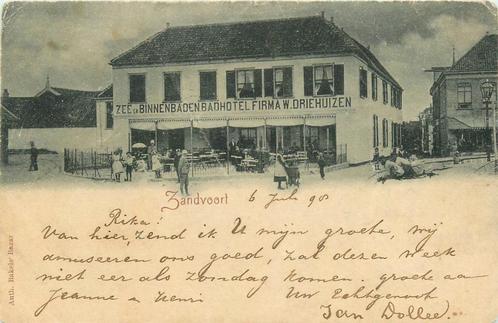 ZEE EN BINNENBADEN BADHOTEL FIRMA W. DRIEHUIZEN
Zandvoort 6 Juli 98
Rika!
Van hier, zend ik U mijn groete, wij
amuseeren ons goed, zal dezen week
niet eer als zondag komen. groete aa
Jeanne en Henri Uw Echtgenoot
Jan Dollee.
Auth. Bakels' Bazar